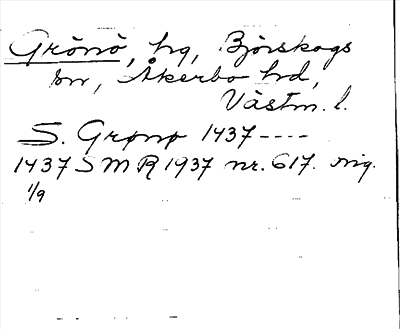 Grönö, hg, Björskogs
sn, Åkerbo hd,
Västm. l.
S. Grønø 1437 ----
1437 SMR 1937 nr. 617. orig.
1/9